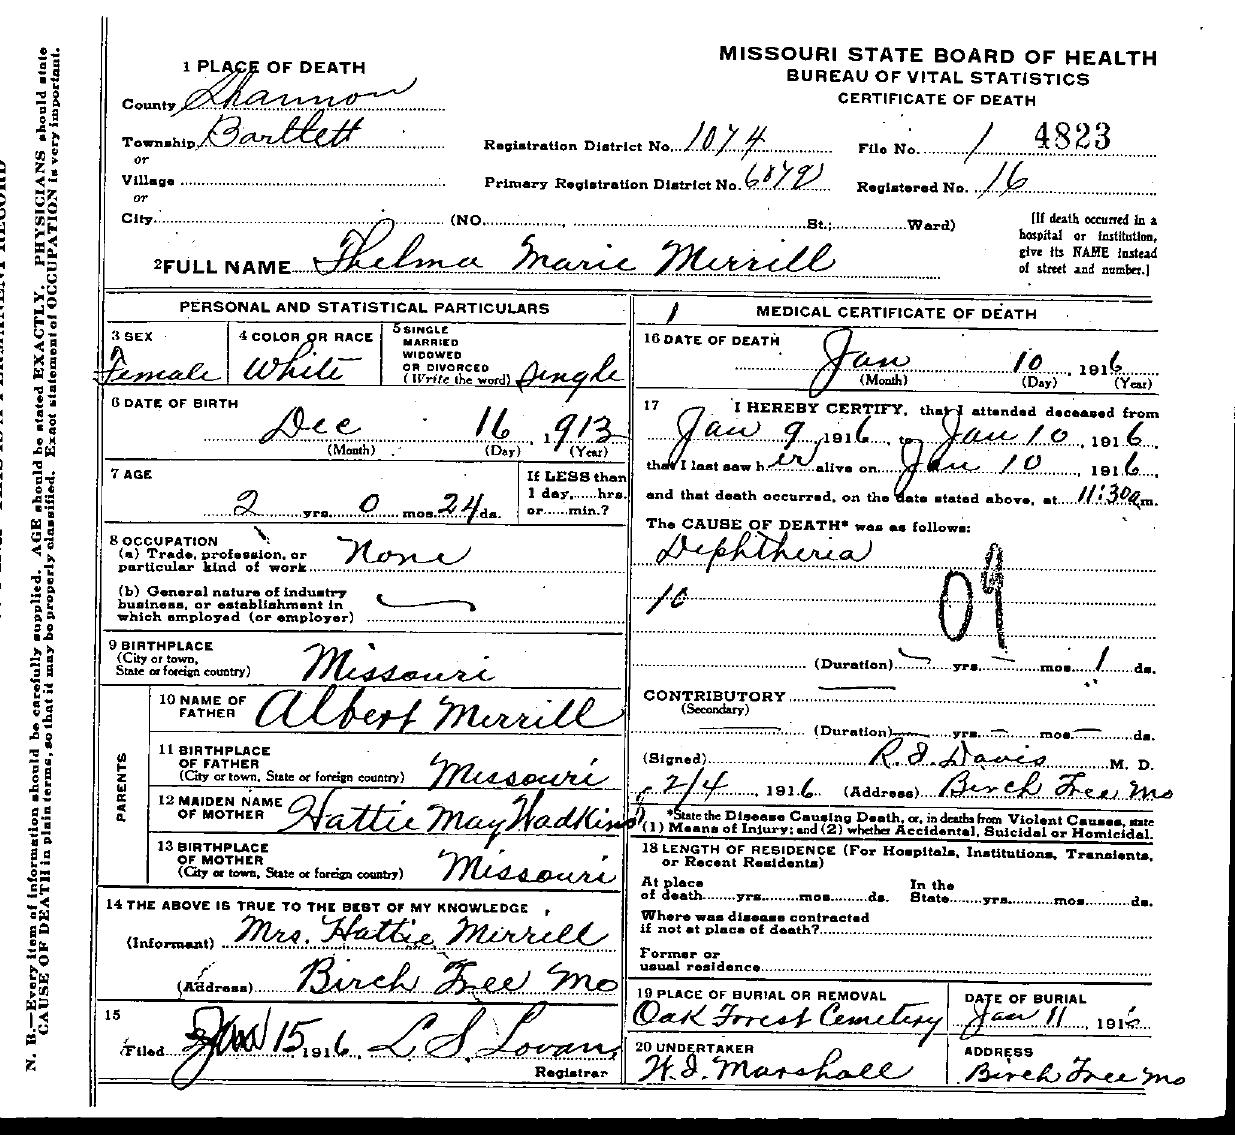 MISSOURI STATE BOARD OF HEALTH
BUREAU OF VITAL STATISTICS
CERTIFICATE OF DEATH
1 PLACE OF DEATH
County Shannon
Township Bartlett
or
Village
or
City (NO. St.; Ward)
Registration District No. 1074 File No. 1 4823
Primary Registration District No. Registered No. 16
[If death occurred in a
hospital or institution,
give its NAME instead
of street and number.]
2 FULL NAME Thelma Marie Merrill
PERSONAL AND STATISTICAL PARTICULARS
3 SEX
Female
4 COLOR OR RACE
White
5 SINGLE
MARRIED
WIDOWED
OR DIVORCED
(Write the word) Single
6 DATE OF BIRTH
Dec 16, 1913
(Month) (Day) (Year)
7 AGE
2 yrs. 0 mos. 24 ds.
If LESS than
1 day, hrs.
or min.?
8 OCCUPATION
(a) Trade, profession, or
particular kind of work None
(b) General nature of industry
business, or establishment in
which employed (or employer)
9 BIRTHPLACE
(City or town,
State or foreign country) Missouri
PARENTS
10 NAME OF
FATHER Albert Merrill
11 BIRTHPLACE
OF FATHER
(City or town, State or foreign country) Missouri
12 MAIDEN NAME
OF MOTHER Hattie May Wadkins
13 BIRTHPLACE
OF MOTHER
(City or town, State or foreign country) Missouri
14 THE ABOVE IS TRUE TO THE BEST OF MY KNOWLEDGE
(Informant) Mrs. Hattie Merrill
(Address) Birch Tree Mo
15
Filed 15 1916, L. S. Lovan
Registrar
1 MEDICAL CERTIFICATE OF DEATH
16 DATE OF DEATH
Jan 10, 1916
(Month) (Day) (Year)
17 I HEREBY CERTIFY, that I attended deceased from
Jan 9, 1916, to Jan 10, 1916,
that I last saw her alive on Jan 10, 1916,
and that death occurred, on the date stated above, at 11:30 a m.
The CAUSE OF DEATH* was as follows:
Diphtheria
10
09
(Duration) yrs. mos. 1 ds.
CONTRIBUTORY
(Secondary)
(Duration) yrs. mos. ds.
(Signed) Davis M. D.
2/4, 1916 (Address) Birch Tree Mo
*State the Disease Causing Death, or, in deaths from Violent Causes, state
(1) Means of Injury; and (2) whether Accidental, Suicidal or Homicidal.
18 LENGTH OF RESIDENCE (For Hospitals, Institutions, Transients,
or Recent Residents)
At place In the
of death yrs. mos. ds. State yrs. mos. ds.
Where was disease contracted
if not at place of death?
Former or
usual residence
19 PLACE OF BURIAL OR REMOVAL
Oak Forest Cemetery
DATE OF BURIAL
Jan 11, 1916
20 UNDERTAKER
Marshall
ADDRESS
Birch Tree Mo
N. B.—Every item of information should be carefully supplied. AGE should be stated EXACTLY. PHYSICIANS should state
CAUSE OF DEATH in plain terms, so that it may be properly classified. Exact statement of OCCUPATION is very important.